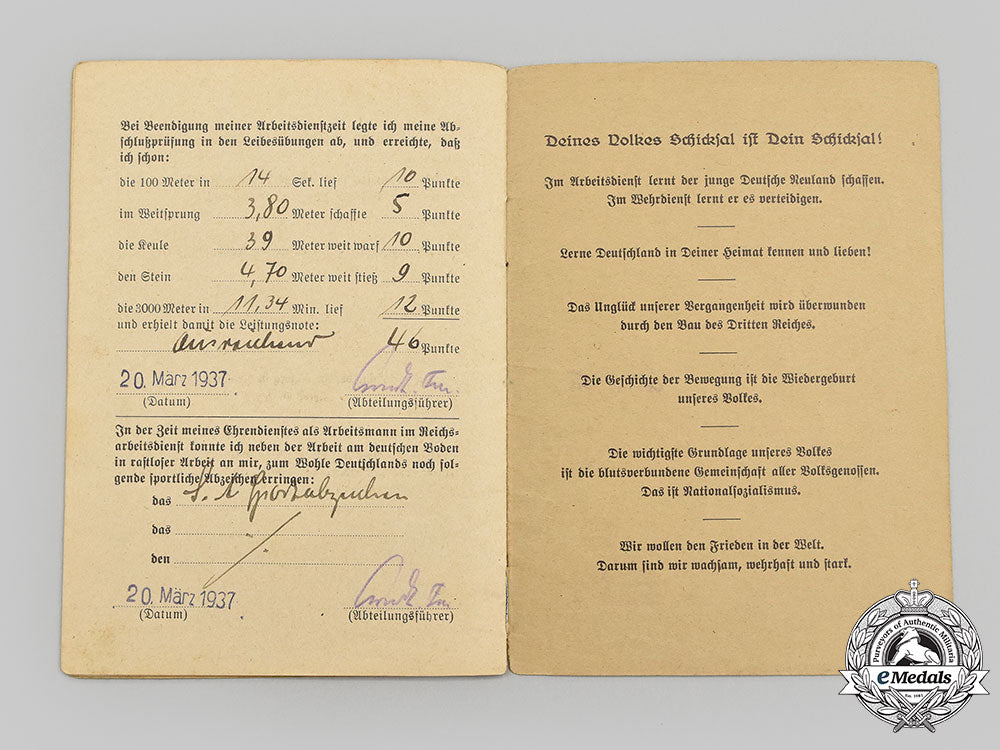 Bei Beendigung meiner Arbeitsdienstzeit legte ich meine Ab-
schlußprüfung in den Leibesübungen ab, und erreichte, daß
ich schon:
die 100 Meter in 14 Sek. lief 10 Punkte
im Weitsprung 3,80 Meter schaffte 5 Punkte
die Keule 39 Meter weit warf 10 Punkte
den Stein 4,70 Meter weit stieß 9 Punkte
die 3000 Meter in 11,34 Min. lief 12 Punkte
und erhielt damit die Leistungsnote:
Ausreichend 46 Punkte
20. März 1937
(Datum) (Abteilungsführer)
In der Zeit meines Ehrendienstes als Arbeitsmann im Reichs-
arbeitsdienst konnte ich neben der Arbeit am deutschen Boden
in rastloser Arbeit an mir, zum Wohle Deutschlands noch fol-
gende sportliche Abzeichen erringen:
das S.A. Sportabzeichen
das
den
20. März 1937
(Datum) (Abteilungsführer)
Deines Volkes Schicksal ist Dein Schicksal!
Im Arbeitsdienst lernt der junge Deutsche Neuland schaffen.
Im Wehrdienst lernt er es verteidigen.
Lerne Deutschland in Deiner Heimat kennen und lieben!
Das Unglück unserer Vergangenheit wird überwunden
durch den Bau des Dritten Reiches.
Die Geschichte der Bewegung ist die Wiedergeburt
unseres Volkes.
Die wichtigste Grundlage unseres Volkes
ist die blutsverbundene Gemeinschaft aller Volksgenossen.
Das ist Nationalsozialismus.
Wir wollen den Frieden in der Welt.
Darum sind wir wachsam, wehrhaft und stark.
Purveyors of Authentic Militaria
eMedals